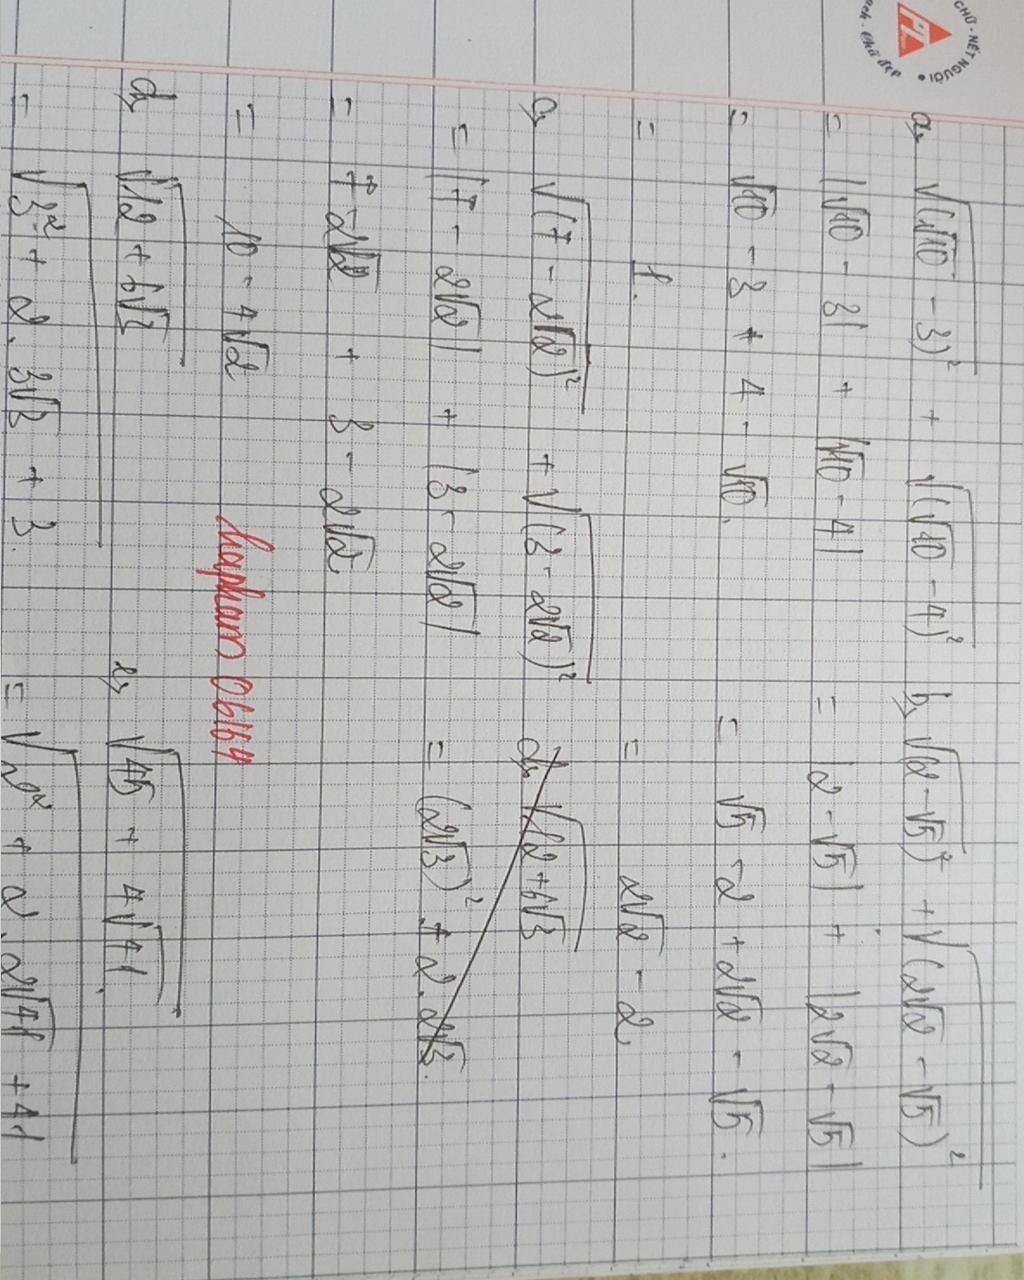 CHỮ - NẾT NGƯỜI
PL
a, √(√10 - 3)² + √(√10 - 4)²
= |√10 - 3| + |√10 - 4|
= √10 - 3 + 4 - √10.
= 1.
b, √(2 - √5)² + √(2√2 - √5)²
= |2 - √5| + |2√2 - √5|
= √5 - 2 + 2√2 - √5.
= 2√2 - 2
c, √(7 - 2√2)² + √(3 - 2√2)²
= |7 - 2√2| + |3 - 2√2|
= 7 - 2√2 + 3 - 2√2
= 10 - 4√2
d, √12 + 6√3
= (2√3)² + 2.2√3.
hapham 06164
d, √12 + 6√3
= √3² + 2.3√3 + 3.
e, √45 + 4√41.
= √2² + 2.2√41 + 41